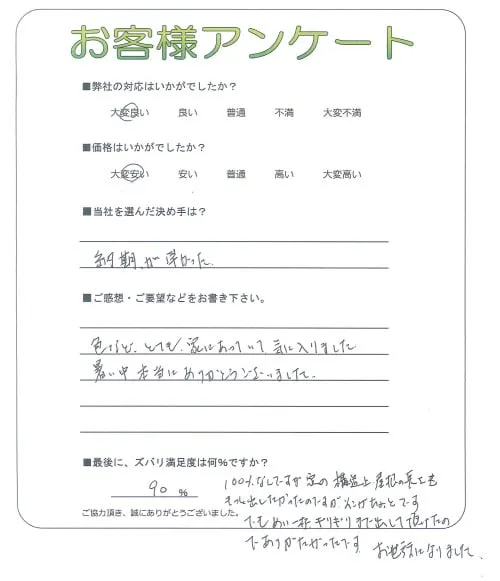 お客様アンケート
■弊社の対応はいかがでしたか?
大変良い 良い 普通 不満 大変不満
■価格はいかがでしたか?
大変安い 安い 普通 高い 大変高い
■当社を選んだ決め手は?
納期が早かった。
■ご感想・ご要望などをお書き下さい。
色など、とても、家にあっていて気に入りました
暑い中本当にありがとうございました。
■最後に、ズバリ満足度は何%ですか?
90 %
100%なしですが家の構造上屋根の長さを
もっと出したかったのですが
でもめい一杯ギリギリまで出して頂いたの
でありがたかったです。 お世話になりました。
ご協力頂き、誠にありがとうございました。